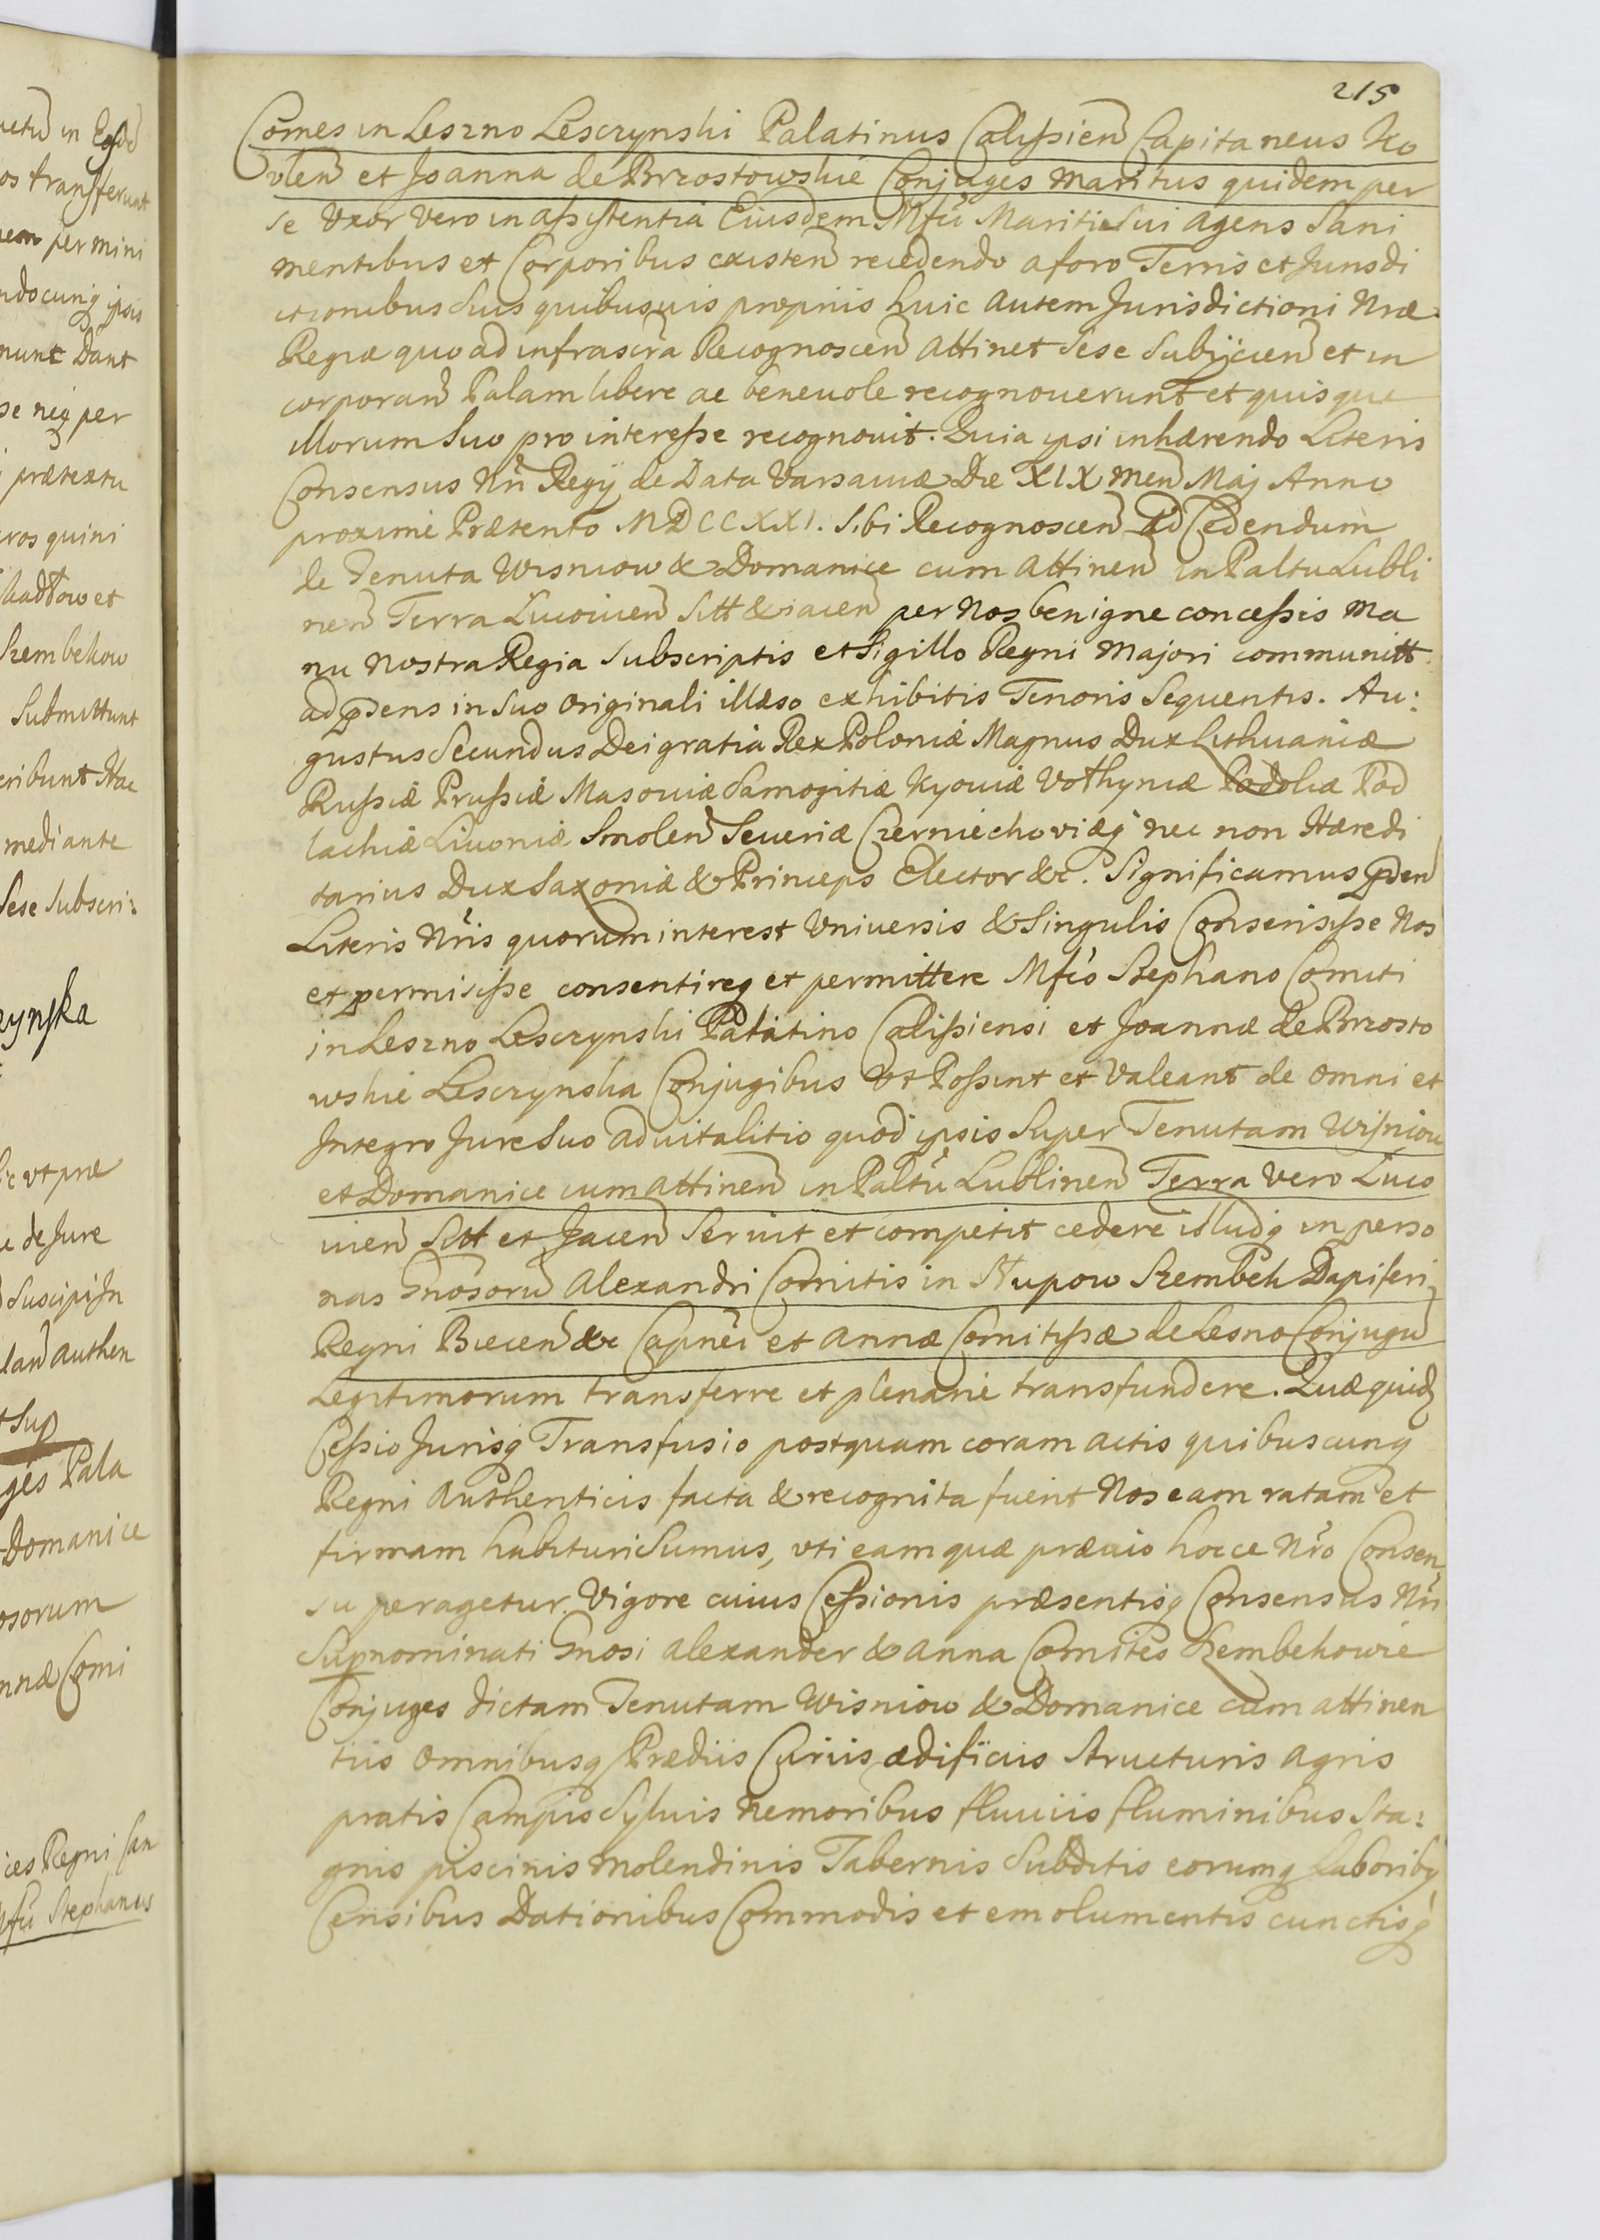 215
Comes in Leszno Lesczynski Palatinus Calissien Capitaneus Ko
vlen et Joanna de Brzostowskie Conjuges Maritus quidem per
se Uxor vero in assistentia Eiusdem Mfci Mariti Sui agens Sani
mentibus et Corporibus existen recedendo a foro Terris et Jurisdi
ctionibus Suis quibusuis proprijs huic autem Jurisdictioni Nræ
Regiæ quo ad infrascra Recognoscen attinet sese Subijcien et in
corporan Palam libere ac beneuole recognouerunt et quisque
illorum Suo pro interesse recognouit. Quia ipsi inhærendo Literis
Consensus Nri Regij de Data Varsauiæ Die XIX Men Maj Anno
proxime Præterito MDCCXXI. Sibi Recognoscen ad Cedendum
de Tenuta Wisniow & Domanice cum attinen in Paltu Lubli
nen Terra Lucouien Sitt & iacen per Nos benigne concessis Ma
nu Nostra Regia Subscriptis et Sigillo Regni Majori communitt
ad pdens in Suo originali illæso exhibitis Tenoris Sequentis. Au:
gustus Secundus Dei gratia Rex Poloniæ Magnus Dux Lithuaniæ
Russiæ Prussiæ Masouiæ Samogitiæ Kyouiæ Volhyniæ Podoliæ Pod
lachiæ Liuoniæ Smolen Seueriæ Czerniechoviæq nec non Hæredi
tarius Dux Saxoniæ & Princeps Elector &c. Significamus pden
Literis Nris quorum interest Vniuersis & Singulis Consensisse Nos
et permisisse consentireq et permittere Mfco Stephano Comiti
in Leszno Lesczynski Palatino Calissiensi et Joannæ de Brzosto
wskie Lesczynska Conjugibus Vt Possint et Valeant de omni et
Integro Jure Suo aduitalitio quod ipsis Super Tenutam Wisniow
et Domanice cum attinen in Paltu Lublinen Terra Vero Luco
uien Sitt et Jacen Seruit et competit cedere illudq in perso
nas Gnosoru Alexandri Comitis in Słupow Szembek Dapiferi
Regni Biecen &c Capnei et Annæ Comitissæ de Lesno Conjugu
Legitimorum transferre et plenarie transfundere. Quæquid
Cessio Jurisq Transfusio postquam coram actis quibuscunq
Regni Authenticis facta & recognita fuerit Nos eam ratam et
firmam habituri Sumus, vti eam quæ præuio hocce Nro Consen
su peragetur. Vigore cuius Cessionis præsentisq Consensus Nri
Supnominati Gnosi Alexander & Anna Comites Szembekowie
Conjuges dictam Tenutam Wisniow & Domanice cum attinen
tiis omnibusq Prædiis Curiis ædificiis Structuris agris
pratis Campis Syluis Nemoribus fluuiis fluminibus Sta:
gnis piscinis molendinis Tabernis Subditis eorumq Laboribq
Censibus Dationibus Commodis et emolumentis cunctisq